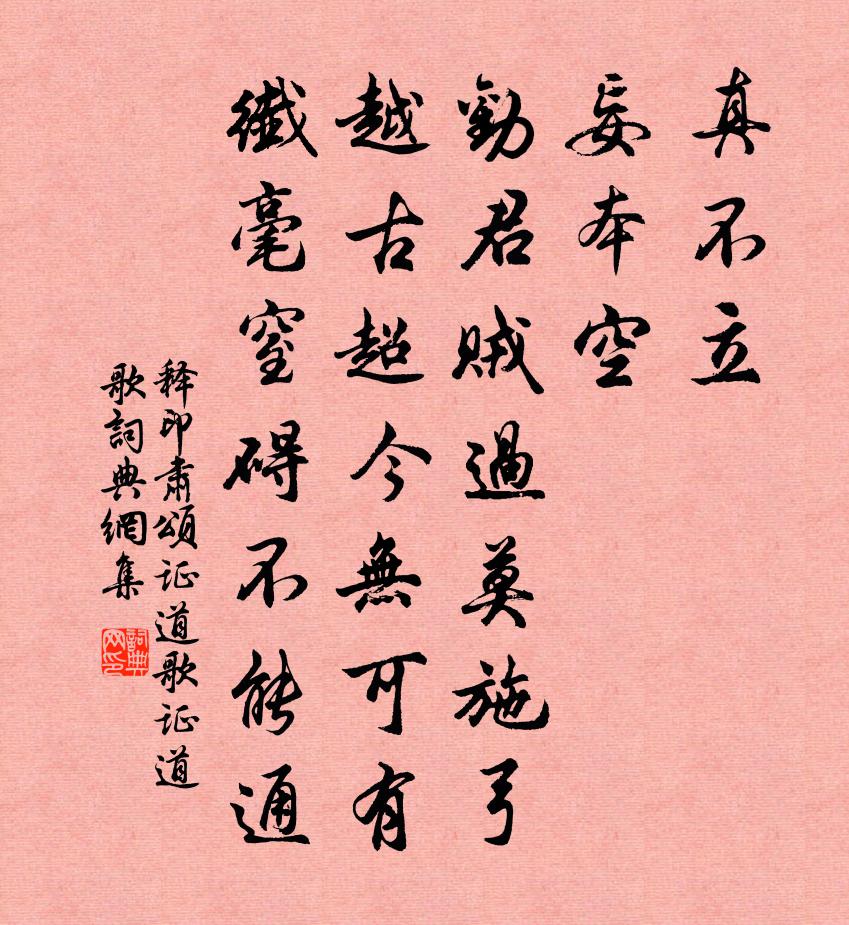 真不立
妄本空
勸君賊過莫施弓
越古超今無可有
纖毫窒碍不能通
释印肃頌证道歌证道
歌詞典網集
詞典
网印